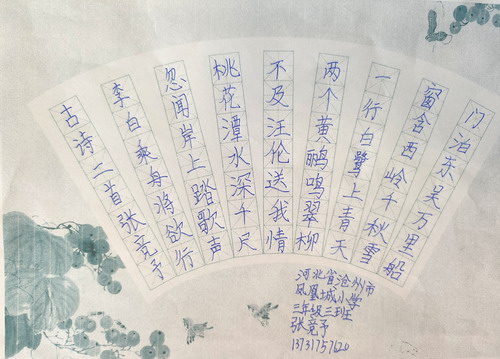 古诗二首张竟予
李白乘舟将欲行
忽闻岸上踏歌声
桃花潭水深千尺
不及汪伦送我情
两个黄鹂鸣翠柳
一行白鹭上青天
窗含西岭千秋雪
门泊东吴万里船
河北省沧州市
凤凰城小学
三年级三班
张竟予
13731757620